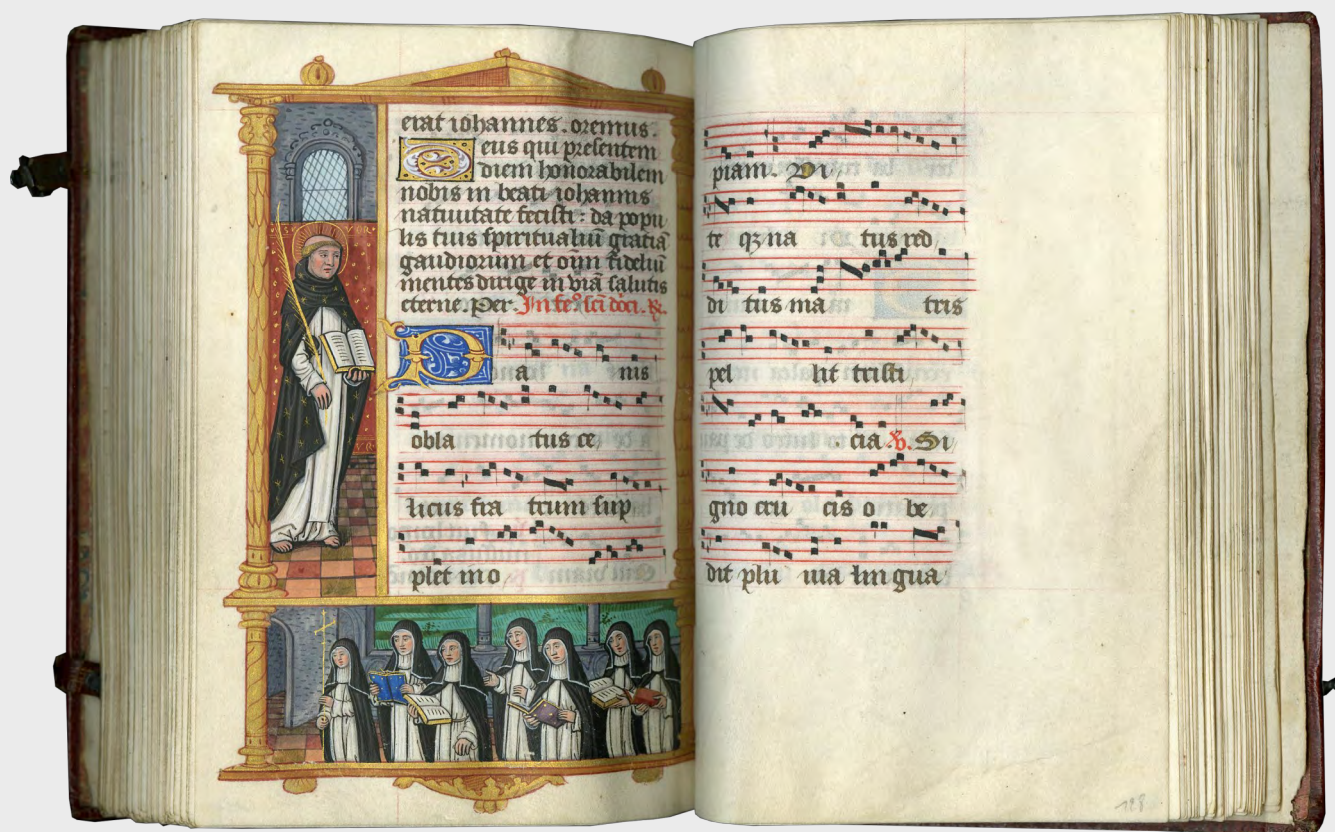 erat iohannes. oremus.
Deus qui presentem
diem honorabilem
nobis in beati iohannis
natiuitate fecisti: da popu
lis tuis spiritualiū gratiā
gaudiorum et oīm fideliū
mentes dirige in viā salutis
eterne. Per. In fe° scī dōci. ℟.
Pa nis
obla tus ce
licus fra trum sup
plet ino
piam. Vi
te qz na tus red
di tus ma tris
pel lit tristi
cia. ℣. Si
gno cru cis o be
dit plu uia lingua
128